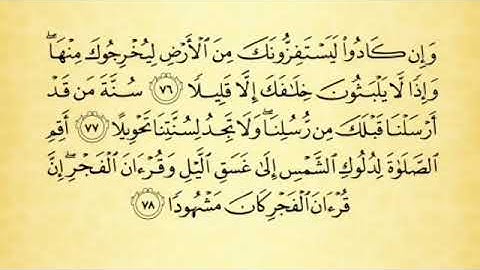 وَإِن كَادُوا۟ لَيَسْتَفِزُّونَكَ مِنَ ٱلْأَرْضِ لِيُخْرِجُوكَ مِنْهَا ۖ
وَإِذًا لَّا يَلْبَثُونَ خِلَـٰفَكَ إِلَّا قَلِيلًا ٧٦ سُنَّةَ مَن قَدْ
أَرْسَلْنَا قَبْلَكَ مِن رُّسُلِنَا ۖ وَلَا تَجِدُ لِسُنَّتِنَا تَحْوِيلًا ٧٧ أَقِمِ
ٱلصَّلَوٰةَ لِدُلُوكِ ٱلشَّمْسِ إِلَىٰ غَسَقِ ٱلَّيْلِ وَقُرْءَانَ ٱلْفَجْرِ ۖ إِنَّ
قُرْءَانَ ٱلْفَجْرِ كَانَ مَشْهُودًا ٧٨